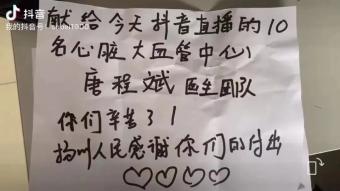 抖音
我的抖音号:
献给今天抖音直播的10
名心脏大血管中心
唐程斌 医生团队
你们辛苦了!
扬州人民感谢你们的付出